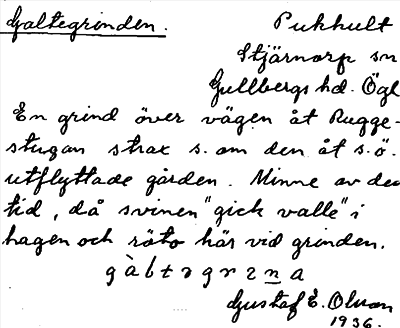 Galtegrinden.
Pukhult
Stjärnorp sn
Gullbergs hd. Ögl
En grind över vägen åt Rugge-
stugan strax s. om den åt s.ö.
utflyttade gården. Minne av den
tid, då svinen "gick valle" i
hagen och röto här vid grinden.
Gustaf E. Olson
1936.